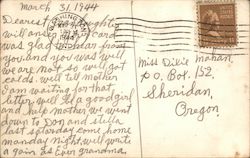 March 31, 1944
Dearest
will answer card
was glad to hear from
you and you was well
we are not so well got
colds. well tell mother
I am waiting for that
letter, well be a good girl
and help mother we went
down to Don and stella
last saterday come home
monday night. well write
again as Ever grandma
Miss Dixie
P.O. Box. 152,
Sheridan,
Oregon.